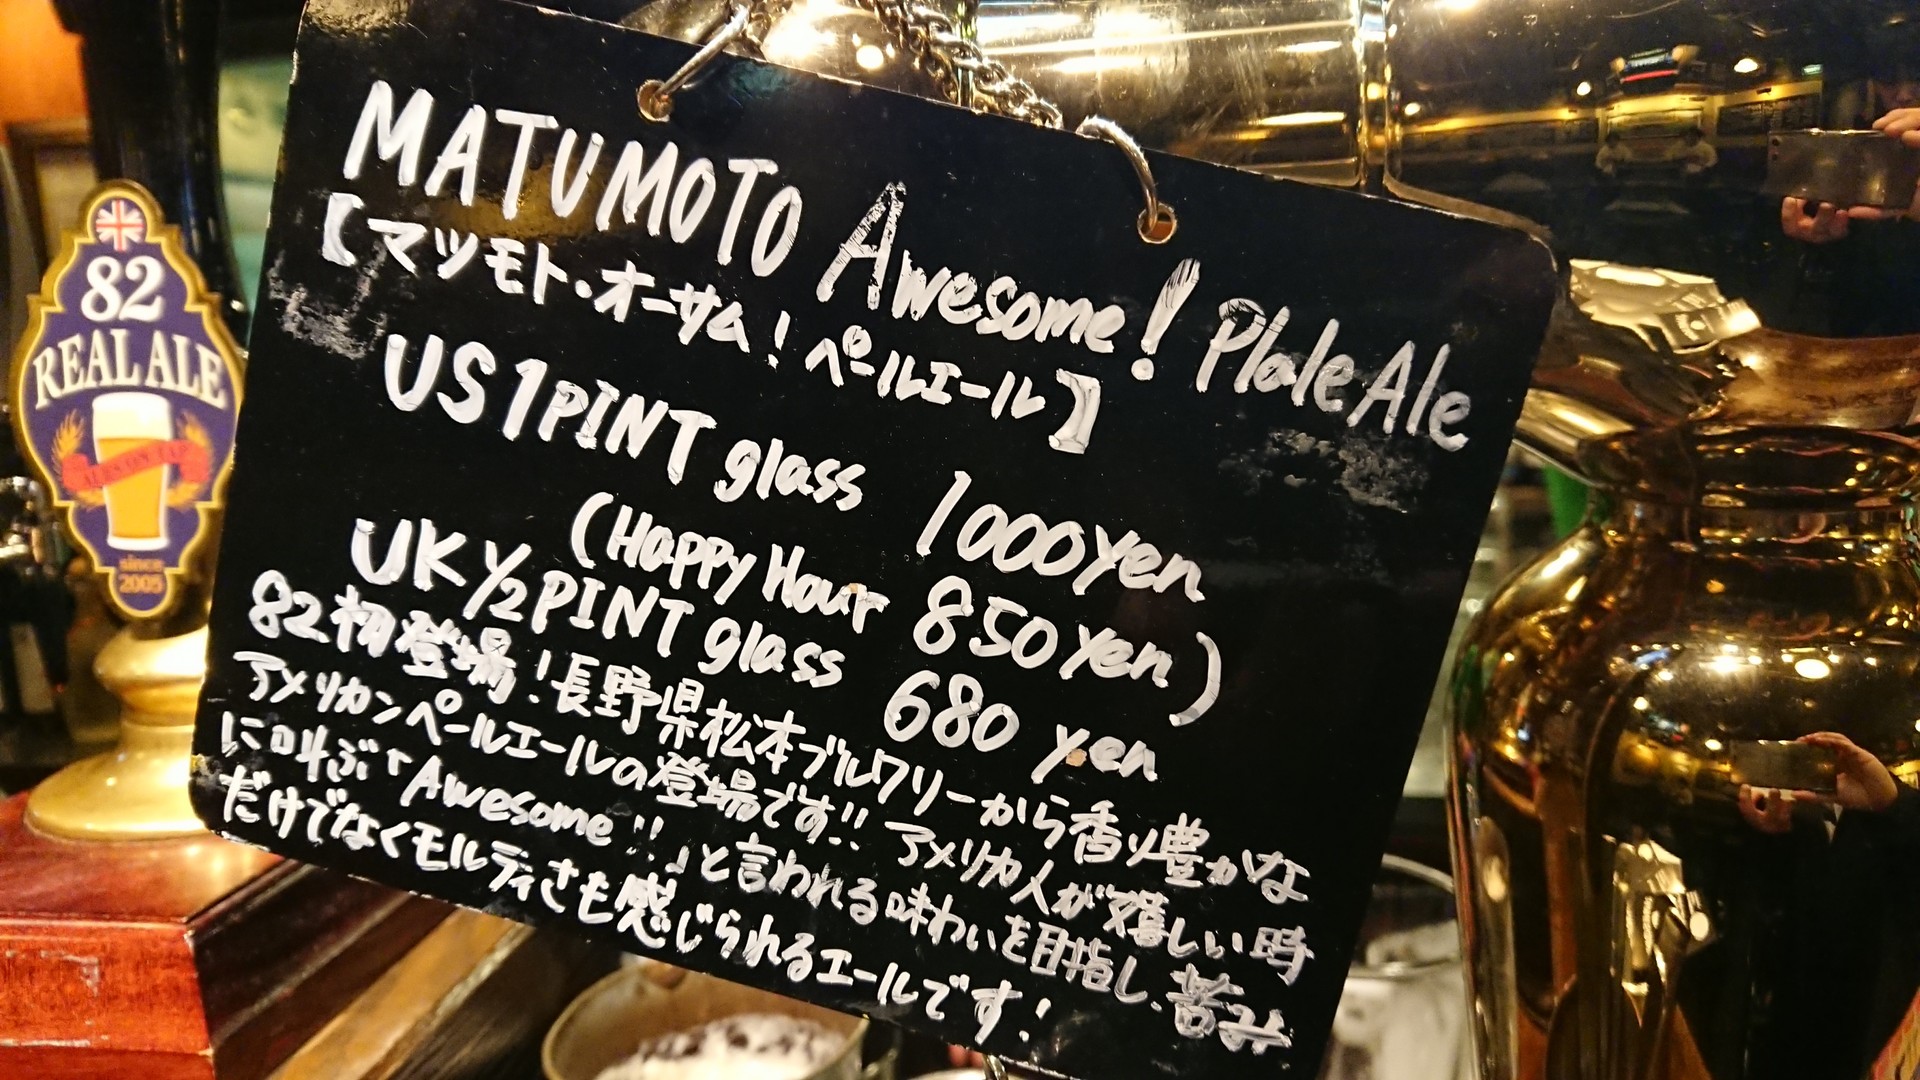 82
REAL ALE
ALES ON TAP
since
2005
MATUMOTO Awesome! Plale Ale
【マツモト・オーサム!ペールエール】
US 1 PINT glass 1000yen
(Happy Hour 850yen)
UK 1/2 PINT glass 680 yen
82初登場!長野県松本ブルワリーから香り豊かな
アメリカンペールエールの登場です!! アメリカ人が嬉しい時
に叫ぶ「Awesome!!」と言われる味わいを目指し、苦み
だけでなくモルティさも感じられるエールです!